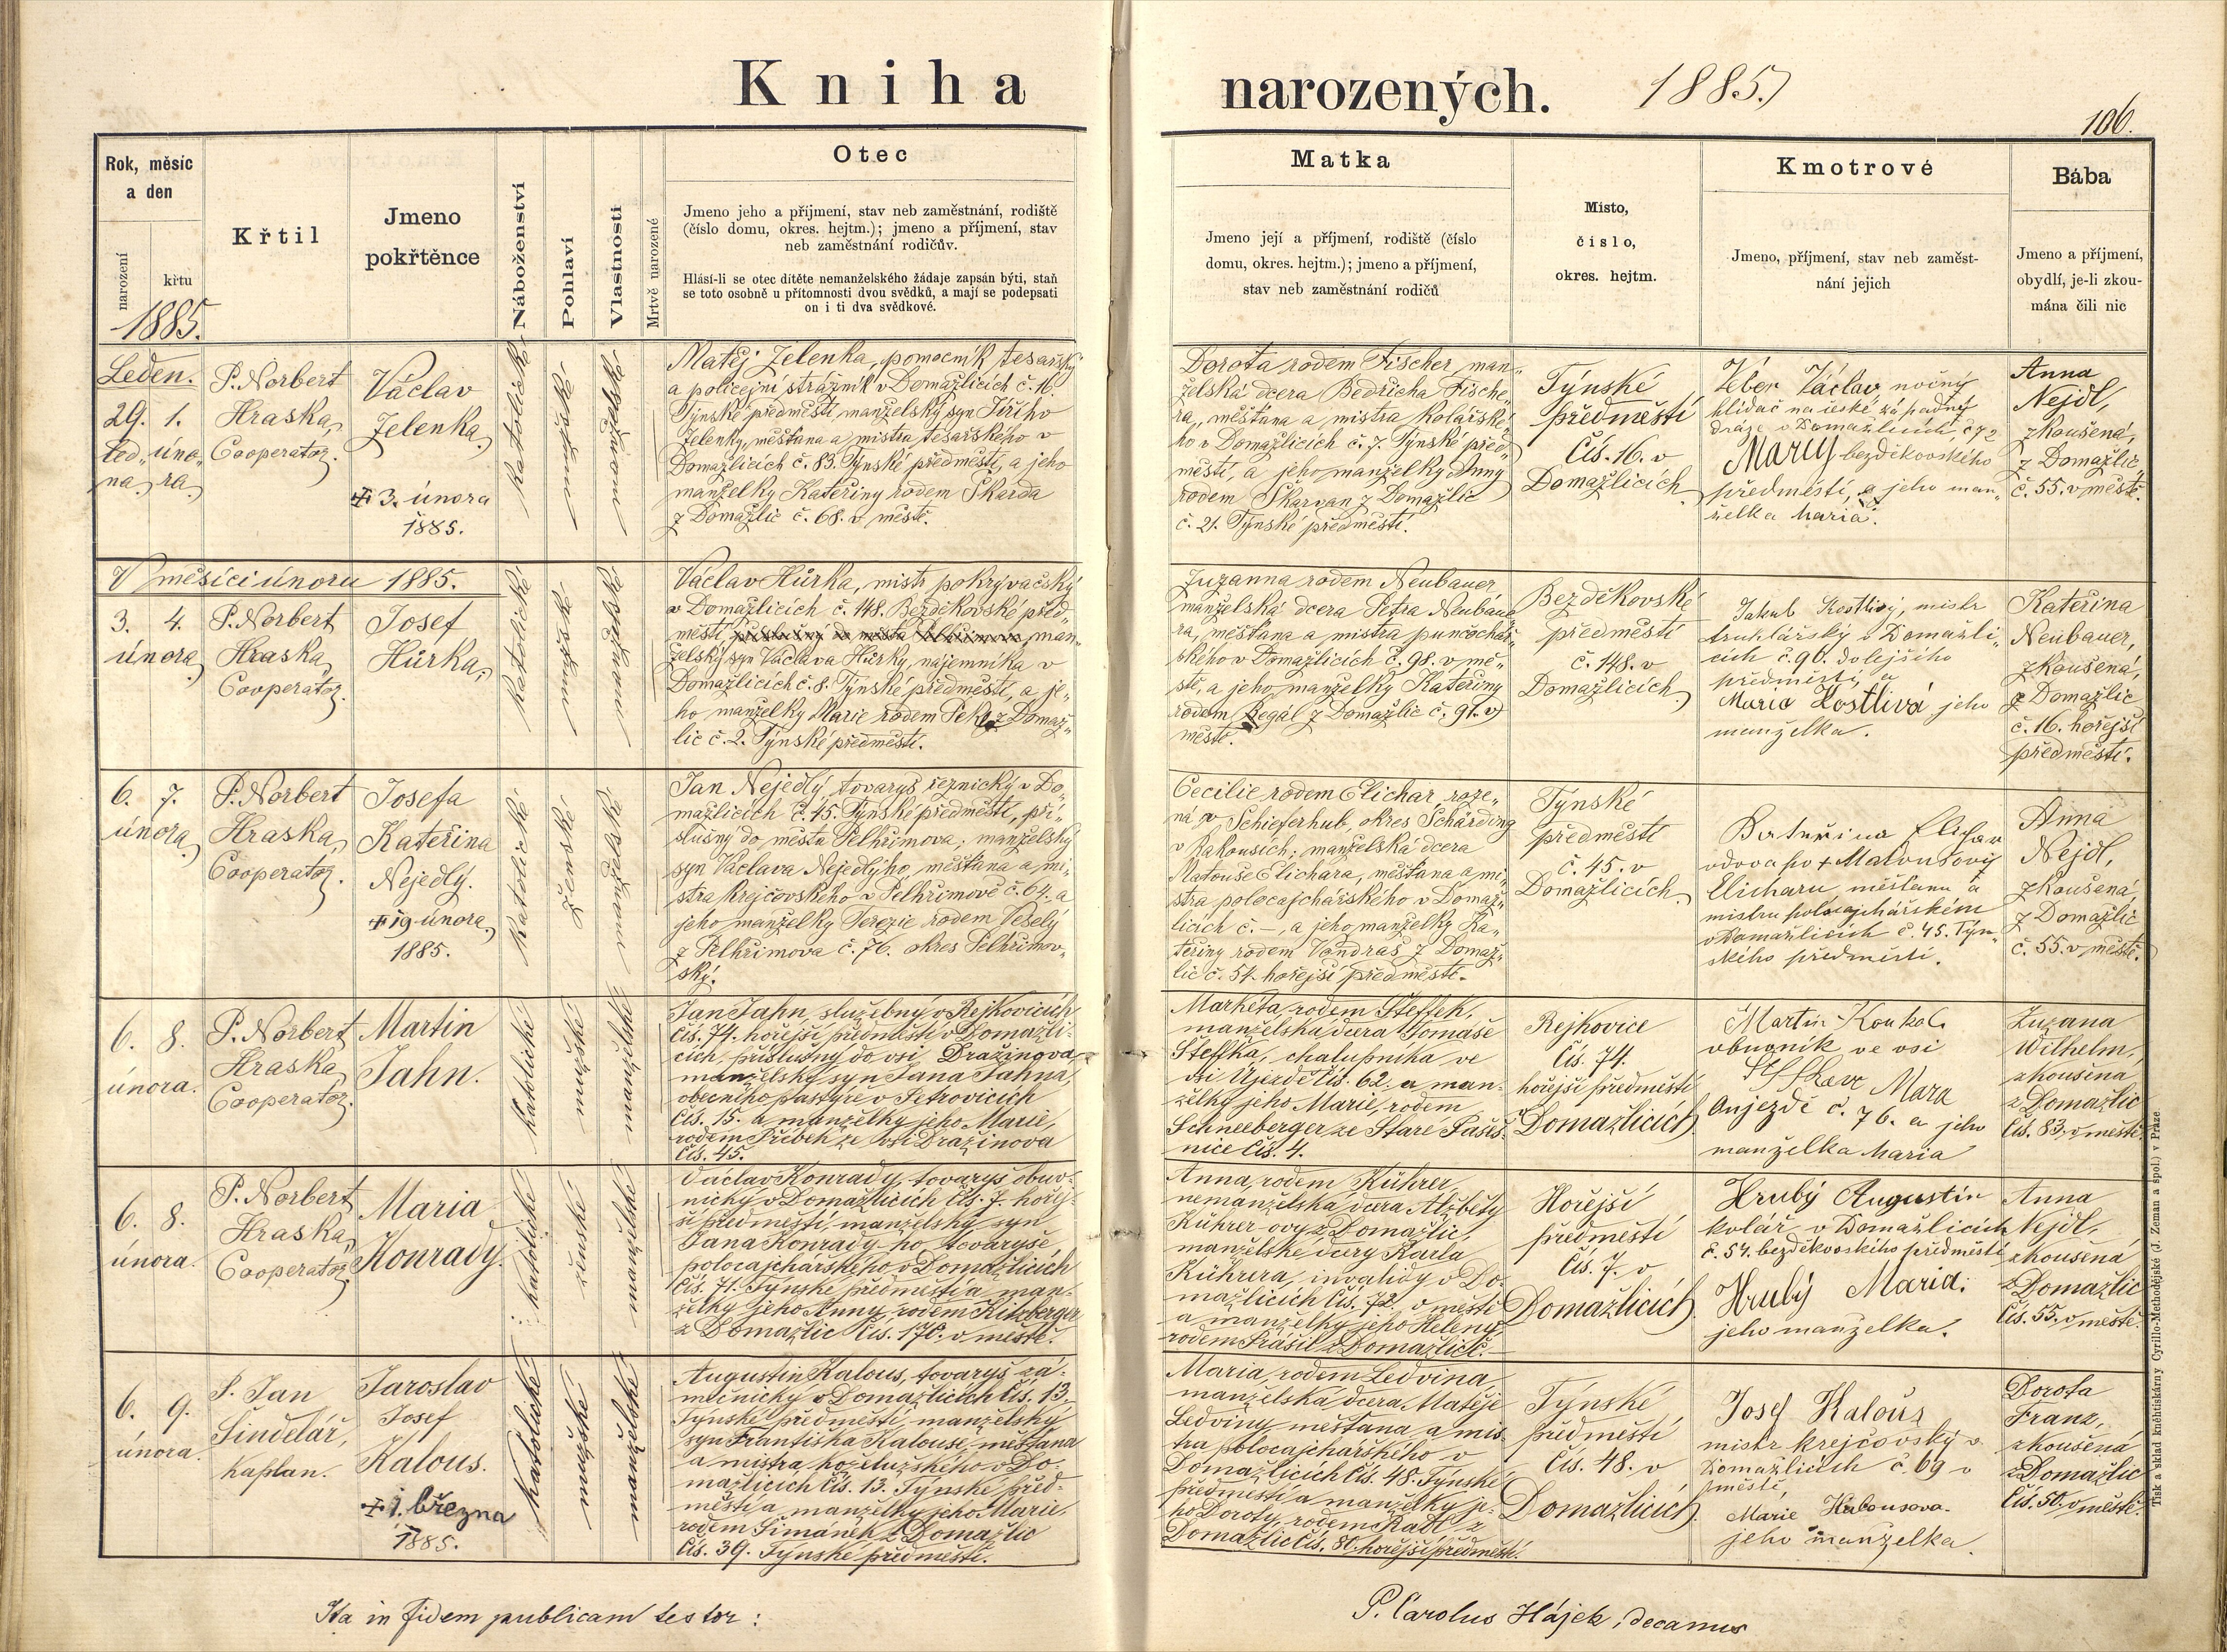 Kniha narozených. 1885.
106.
Rok, měsíc
a den
narození
křtu
1885.
Křtil
Jmeno
pokřtěnce
Náboženství
Pohlaví
Vlastnosti
Mrtvě narozené
Otec
Jmeno jeho a příjmení, stav neb zaměstnání, rodiště
(číslo domu, okres. hejtm.); jmeno a příjmení, stav
neb zaměstnání rodičův.
Hlásí-li se otec dítěte nemanželského žádaje zapsán býti, staň
se toto osobně u přítomnosti dvou svědků, a mají se podepsati
on i ti dva svědkové.
Matka
Jmeno její a příjmení, rodiště (číslo
domu, okres. hejtm.); jmeno a příjmení,
stav neb zaměstnání rodičů
Místo,
číslo,
okres. hejtm.
Kmotrové
Jmeno, příjmení, stav neb zaměst-
nání jejich
Bába
Jmeno a příjmení,
obydlí, je-li zkou-
mána čili nic
Leden.
29. 1.
led„ úno„
na. ra.
P. Norbert
Hraska,
Cooperator.
Václav
Jelenka.
+ 3. února
1885.
katolické
mužské
manželské
Matěj Jelenka, pomocník tesařský
a policejní strážník v Domažlicích č. 16
Týnské předměstí, manželský syn Jiřího
Jelenky, měšťana a mistra tesařského v
Domažlicích č. 83. Týnské předměstí, a jeho
manželky Kateřiny rodem Škarda
z Domažlic č. 68. v městě.
Dorota rodem Fischer, man„
želská dcera Bedřicha Fische„
ra, měšťana a mistra kolářské„
ho v Domažlicích č. 7. Týnské před„
městí, a jeho manželky Anny
rodem Škarvan z Domažlic
č. 21. Týnské předměstí.
Týnské
předměstí
Čís. 16. v
Domažlicích.
Véber Václav, noční
hlídač na české západný
dráze v Domažlicích, č 72
bezděkovského
předměstí, a jeho man„
želka Maria.
Anna
Nejdl,
zkoušená,
z Domažlic
č. 55. v městě.
V měsíci únoru 1885.
3. 4.
února.
P. Norbert
Hraska,
Cooperator.
Josef
Hůrka.
katolické
mužské
manželské
Václav Hůrka, mistr pokrývačský
v Domažlicích č. 148. Bezděkovské před„
městí man„
želský syn Václava Hůrky, nájemníka v
Domažlicích č. 8. Týnské předměstí, a je„
ho manželky Marie rodem Pek z Domaž„
lic č. 2. Týnské předměstí.
Zuzanna rodem Neubauer,
manželská dcera Petra Neubaue„
ra, měšťana a mistra punčochář„
ského v Domažlicích č. 98. v mě„
stě, a jeho manželky Kateřiny
rodem Regál z Domažlic č. 91. v
městě.
Bezděkovské
předměstí
č. 148. v
Domažlicích.
Jakub Kostlivý, mistr
truhlářský v Domažli„
cích č. 90. dolejšího
předměstí, a
Marie Kostlivá jeho
manželka.
Kateřina
Neubauer,
zkoušená,
z Domažlic
č. 16. hořejší
předměstí.
6. 7.
února.
P. Norbert
Hraska,
Cooperator.
Josefa
Kateřina
Nejedlý.
+ 19. února
1885.
Katolické
ženské
manželské
Jan Nejedlý, tovaryš řeznický v Do„
mažlicích č. 45. Týnské předměstí, pří„
slušný do města Pelhřimova; manželský
syn Václava Nejedlýho, měšťana a mi„
stra krejčovského v Pelhřimově č. 64. a
jeho manželky Terezie rodem Veselý
z Pelhřimova č. 76. okres Pelhřimov„
ský.
Cecilie rodem Elichar, roze„
ná v Schieferhub, okres Schärding
v Rakousích; manželská dcera
Matouše Elichara, měšťana a mi„
stra polocajchářského v Domaž„
licích č. –, a jeho manželky Ka„
teřiny rodem Vondraš z Domaž„
lic č. 54. hořejší předměstí.
Týnské
předměstí
č. 45. v
Domažlicích.
Kateřina Elichar
vdova po + Matoušovy
Elicharu, měšťanu a
mistru polocajchářském
v Domažlicích č. 45. Týn„
ského předměstí.
Anna
Nejdl,
zkoušená
z Domažlic
č. 55. v městě.
6. 8.
února.
P. Norbert
Hraska,
Cooperator.
Martin
Jahn.
katolické
mužské
manželské
Jan Jahn, služebný v Rejkovicích
čís. 74. hořejší předměstí v Domažli-
cích, příslušný do vsi Dražinova
manželský syn Jana Jahna,
obecního pastýře v Petrovicích
čís. 15. a manželky jeho Marie,
rodem Příbek ze vsi Dražinova
čís. 45.
Markéta, rodem Steflek,
manželská dcera Tomáše
Steflka, chalupníka ve
vsi Újezdě čís. 62. a man-
želky jeho Marie, rodem
Schneeberger ze Staré Paseč-
nice čís. 4.
Rejkovice
čís. 74.
hořejší předměstí
Domažlicích.
Martin Koukol.
obuvník ve vsi
Mara
Aujezdě č. 76. a jeho
manželka Maria
Zuzana
Wilhelm,
zkoušená
z Domažlic
čís. 83. v městě.
6. 8.
února.
P. Norbert
Hraska,
Cooperator.
Maria
Konrady.
katolické
ženské
manželské
Václav Konrady, tovaryš obuv-
nický v Domažlicích čís. 7. hořej-
ší předměstí, manželský syn
Jana Konrady-ho, tovaryše
polocajchařského v Domažlicích
čís. 71. Týnské předměstí a man-
želky jeho Anny, rodem Kitzberger
z Domažlic čís. 170. v městě.
Anna, rodem Kührer,
nemanželská dcera Alžběty
Kührer-ovy z Domažlic,
manželské dcery Karla
Kührera, invalidy v Do-
mažlicích čís. 72. v městě
a manželky jeho Heleny,
rodem Prášil z Domažlic č. –
Hořejší
předměstí
čís. 7. v
Domažlicích.
Hrubý Augustin
kolář v Domažlicích
č. 57. bezděkovského předměstí
Hrubý Maria.
jeho manželka.
Anna
Nejdl,
zkoušená
z Domažlic
čís. 55. v městě.
6. 9.
února.
P. Jan
Šindelář,
kaplan.
Jaroslav
Josef
Kalous.
+ 1. března
1885.
katolické
mužské
manželské
Augustin Kalous, tovaryš zá-
mečnický v Domažlicích čís. 13.
Týnské předměstí, manželský
syn Františka Kalouse, měšťana
a mistra koželužského v Do-
mažlicích čís. 13. Týnské před-
městí a manželky jeho Marie,
rodem Šimánek z Domažlic
čís. 39. Týnské předměstí.
Maria, rodem Ledvina
manželská dcera Matěje
Ledviny, měšťana a mis-
tra polocajchařského v
Domažlicích čís. 48. Týnské
předměstí a manželky je-
ho Doroty, rodem Radl z
Domažlic čís. 80. hořejší předměstí.
Týnské
předměstí
čís. 48. v
Domažlicích.
Josef Kalous
mistr krejčovský v
Domažlicích č. 69 v
městě,
Marie Kalousova
jeho manželka.
Dorota
Franz,
zkoušená
z Domažlic
čís. 50. v městě.
Ita in fidem publicam testor:
P. Carolus Hájek, decanus
Tisk a sklad knihtiskárny Cyrillo-Methodějské (J. Zeman a spol.) v Praze